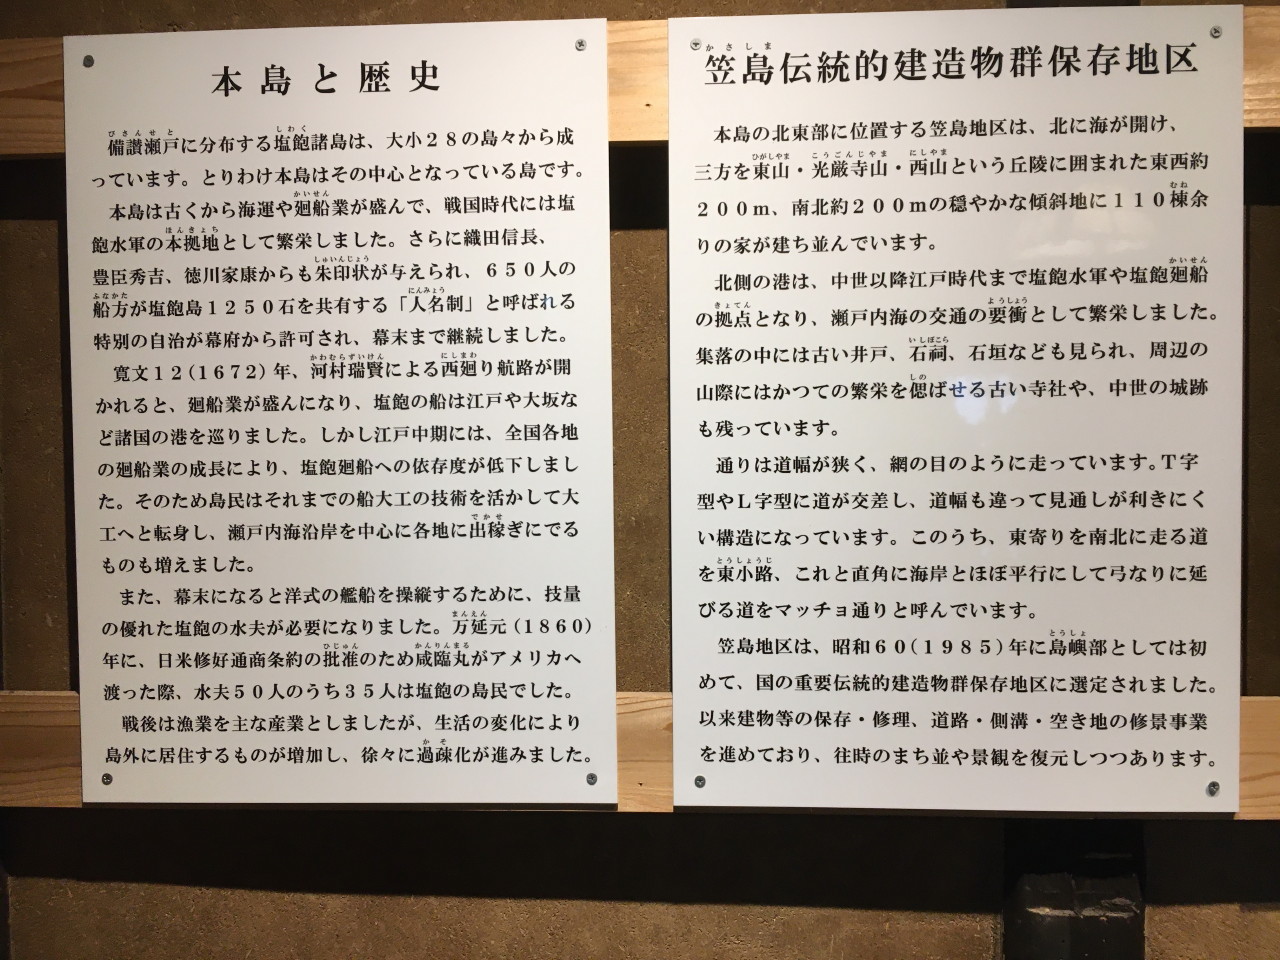 本島と歴史
備讃瀬戸に分布する塩飽諸島は、大小２８の島々から成
っています。とりわけ本島はその中心となっている島です。
本島は古くから海運や廻船業が盛んで、戦国時代には塩
飽水軍の本拠地として繁栄しました。さらに織田信長、
豊臣秀吉、徳川家康からも朱印状が与えられ、６５０人の
船方が塩飽島１２５０石を共有する「人名制」と呼ばれる
特別の自治が幕府から許可され、幕末まで継続しました。
寛文１２(１６７２)年、河村瑞賢による西廻り航路が開
かれると、廻船業が盛んになり、塩飽の船は江戸や大坂な
ど諸国の港を巡りました。しかし江戸中期には、全国各地
の廻船業の成長により、塩飽廻船への依存度が低下しまし
た。そのため島民はそれまでの船大工の技術を活かして大
工へと転身し、瀬戸内海沿岸を中心に各地に出稼ぎにでる
ものも増えました。
また、幕末になると洋式の艦船を操縦するために、技量
の優れた塩飽の水夫が必要になりました。万延元(１８６０)
年に、日米修好通商条約の批准のため咸臨丸がアメリカへ
渡った際、水夫５０人のうち３５人は塩飽の島民でした。
戦後は漁業を主な産業としましたが、生活の変化により
島外に居住するものが増加し、徐々に過疎化が進みました。
笠島伝統的建造物群保存地区
本島の北東部に位置する笠島地区は、北に海が開け、
三方を東山・光厳寺山・西山という丘陵に囲まれた東西約
２００ｍ、南北約２００ｍの穏やかな傾斜地に１１０棟余
りの家が建ち並んでいます。
北側の港は、中世以降江戸時代まで塩飽水軍や塩飽廻船
の拠点となり、瀬戸内海の交通の要衝として繁栄しました。
集落の中には古い井戸、石祠、石垣なども見られ、周辺の
山際にはかつての繁栄を偲ばせる古い寺社や、中世の城跡
も残っています。
通りは道幅が狭く、網の目のように走っています。Ｔ字
型やＬ字型に道が交差し、道幅も違って見通しが利きにく
い構造になっています。このうち、東寄りを南北に走る道
を東小路、これと直角に海岸とほぼ平行にして弓なりに延
びる道をマッチョ通りと呼んでいます。
笠島地区は、昭和６０(１９８５)年に島嶼部としては初
めて、国の重要伝統的建造物群保存地区に選定されました。
以来建物等の保存・修理、道路・側溝・空き地の修景事業
を進めており、往時のまち並や景観を復元しつつあります。